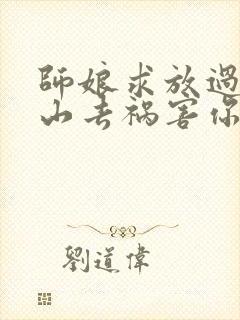 師娘求放過
山去禍害你
劉道偉